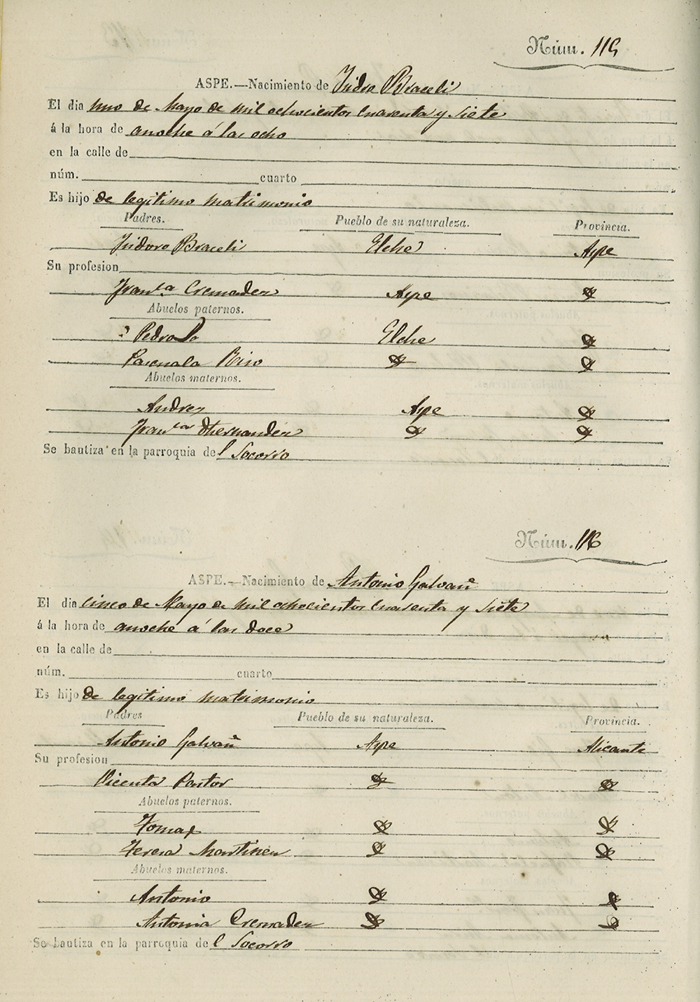 Núm. 115
ASPE.—Nacimiento de Isidra Braceli
El dia uno de Mayo de mil ochocientos cuarenta y siete
á la hora de anoche á las ocho
en la calle de
núm. cuarto
Es hijo de legitimo matrimonio
Padres. Pueblo de su naturaleza. Provincia.
Isidoro Braceli Elche Aspe
Su profesion
Franca Cremades Aspe
Abuelos paternos.
Pedro Elche
Pascuala
Abuelos maternos.
Andres Aspe
Franca Hernandez
Se bautiza en la parroquia del Socorro
Núm. 116
ASPE.—Nacimiento de Antonio Galvañ
El dia cinco de Mayo de mil ochocientos cuarenta y siete
á la hora de anoche á las doce
en la calle de
núm. cuarto
Es hijo de legitimo matrimonio
Padres Pueblo de su naturaleza. Provincia.
Antonio Galvañ Aspe Alicante
Su profesion
Vicenta Pastor
Abuelos paternos.
Tomas
Teresa Martinez
Abuelos maternos.
Antonio
Antonia Cremades
Se bautiza en la parroquia del Socorro